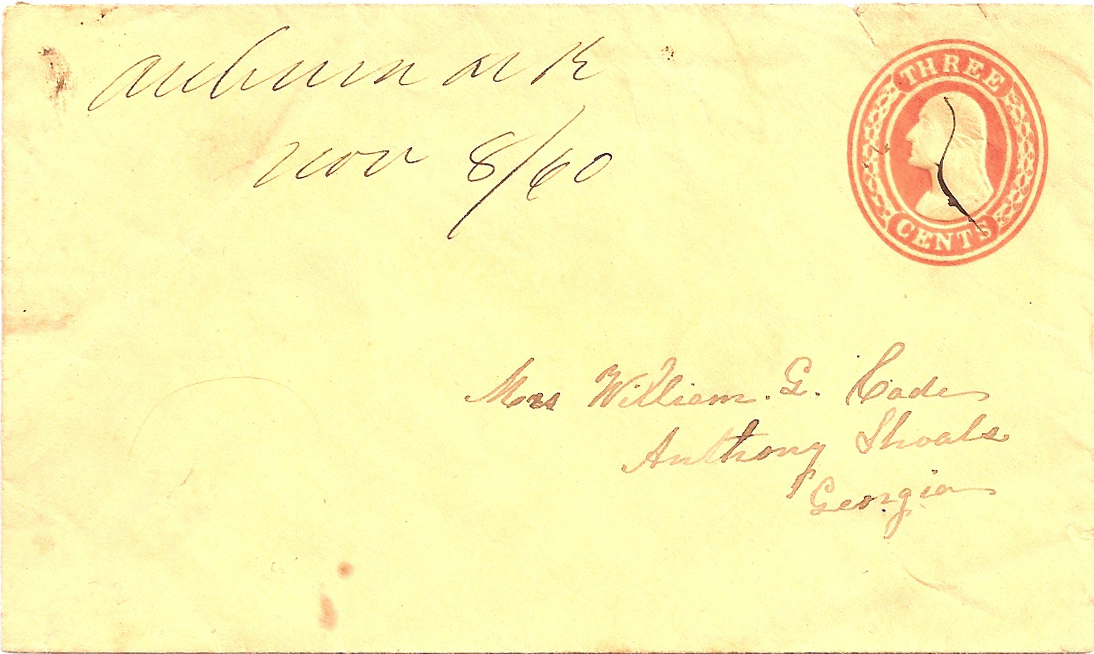 Auburn Ark
Nov 8/60
THREE
CENTS
Mrs William. G. Cade
Anthony Shoals
Georgia